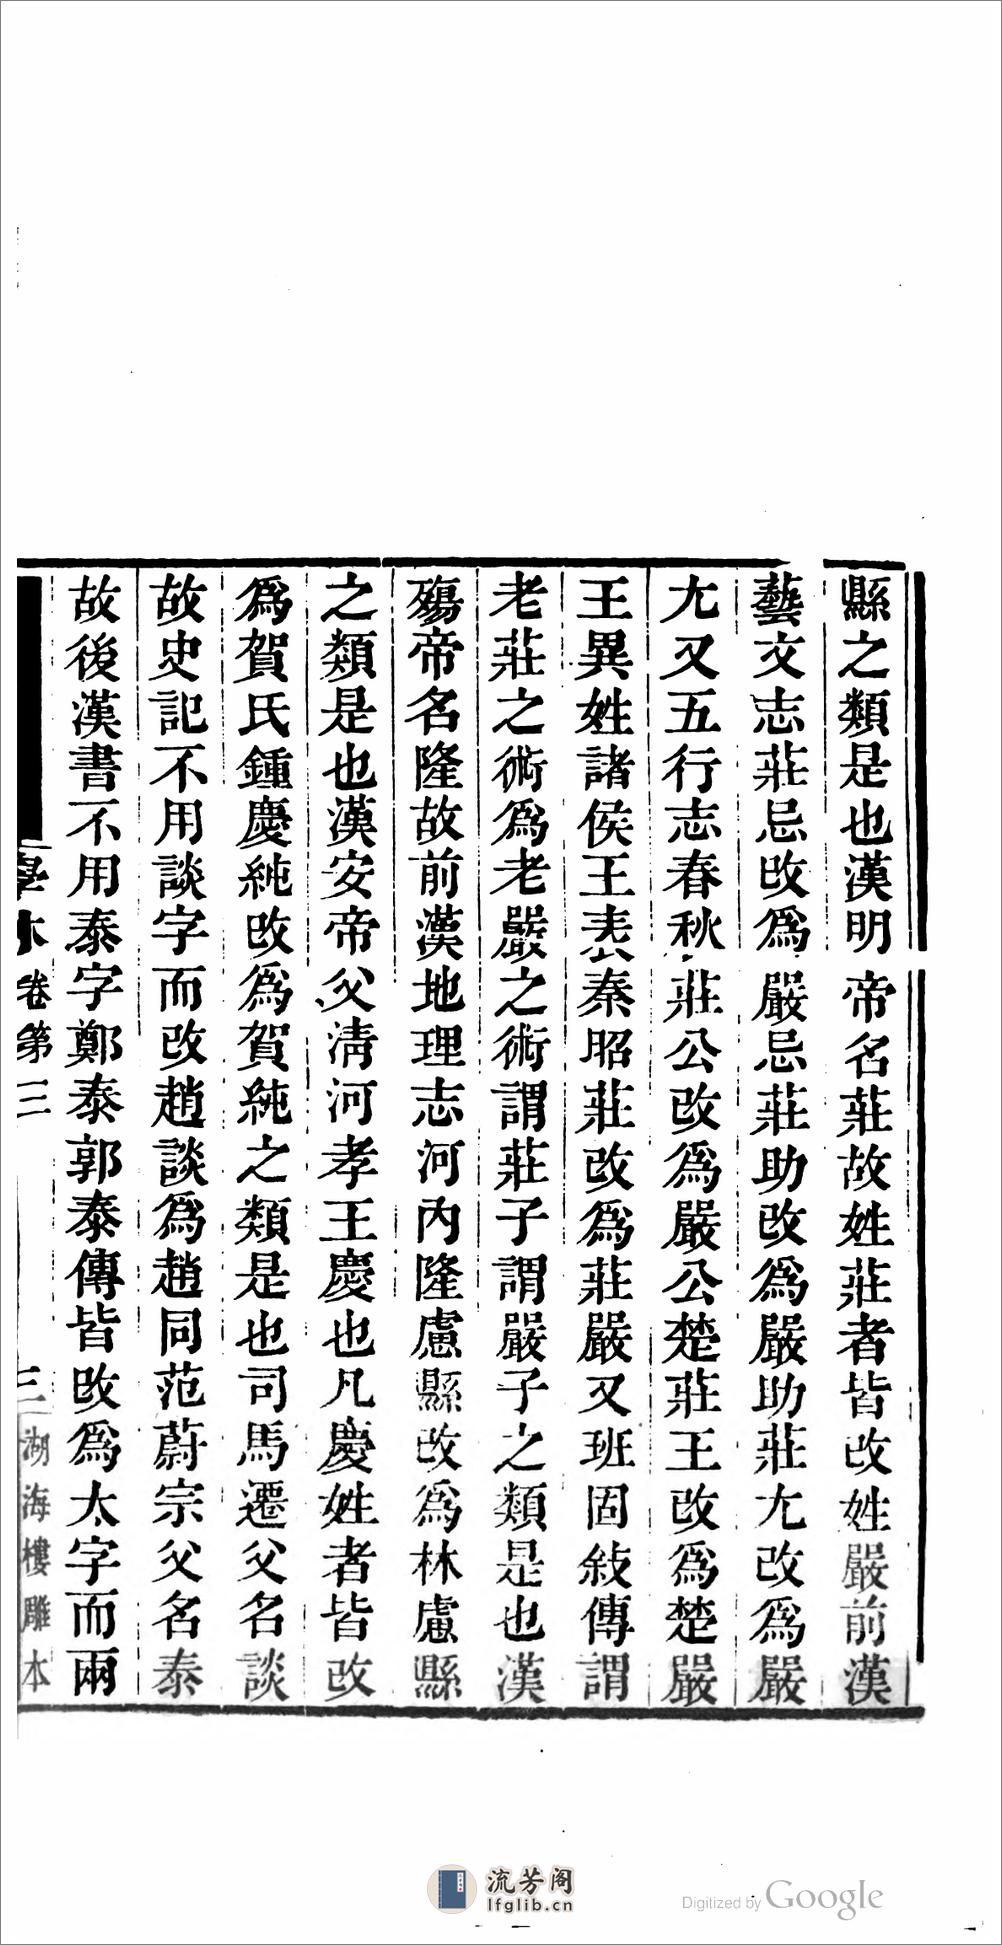 縣之類是也漢明帝名莊故姓莊者皆改姓嚴前漢
藝文志莊忌改爲嚴忌莊助改爲嚴助莊尤改爲嚴
尤又五行志春秋莊公改爲嚴公楚莊王改爲楚嚴
王異姓諸侯王表秦昭莊改爲莊嚴又班固敍傳謂
老莊之術爲老嚴之術謂莊子謂嚴子之類是也漢
殤帝名隆故前漢地理志河內隆慮縣改爲林慮縣
之類是也漢安帝父淸河孝王慶也凡慶姓者皆改
爲賀氏鍾慶純改爲賀純之類是也司馬遷父名談
故史記不用談字而改趙談爲趙同范蔚宗父名泰
故後漢書不用泰字鄭泰郭泰傳皆改爲太字而兩
學林卷第三
三
湖海樓雕本
流芳阁
lfglib.cn
Digitized by Google